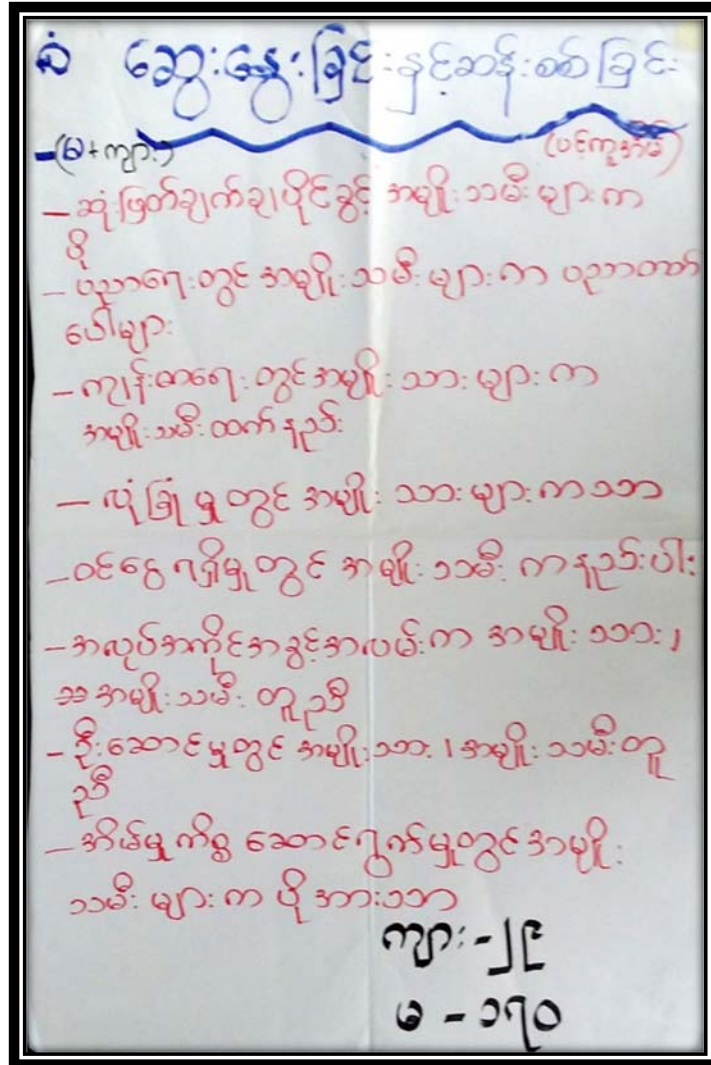 ဆွေးနွေးခြင်းနှင့်ဆန်းစစ်ခြင်း
(မ+ကျား) (ပင့်ကူအိမ်)
– ဆုံးဖြတ်ချက်ချပိုင်ခွင့် အမျိုးသမီးများက
ပို
– ပညာရေးတွင် အမျိုးသမီးများက ပညာတတ်
ပေါများ
– ကျန်းမာရေးတွင်အမျိုးသားများက
အမျိုးသမီးထက်နည်း
– လုံခြုံမှုတွင် အမျိုးသားများကသာ
– ဝင်ငွေရရှိမှုတွင် အမျိုးသမီးကနည်းပါး
– အလုပ်အကိုင်အခွင့်အလမ်းက အမျိုးသား၊
အမျိုးသမီး တူညီ
– ဦးဆောင်မှုတွင် အမျိုးသား၊အမျိုးသမီးတူ
ညီ
– အိမ်မှုကိစ္စ ဆောင်ရွက်မှုတွင်အမျိုး
သမီးများက ပိုအားသာ
ကျား - ၂၉
မ - ၁၇၀